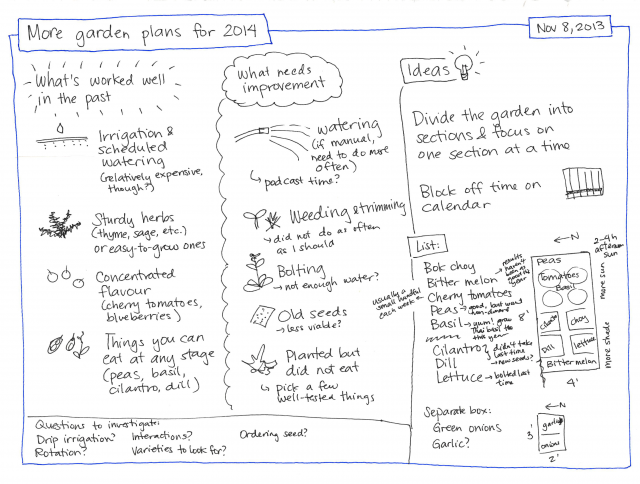 More garden plans for 2014
Nov 8, 2013
What's worked well
in the past
Irrigation &
scheduled
watering
(relatively expensive,
though?)
Sturdy herbs
(thyme, sage, etc.)
or easy-to-grow ones
Concentrated
flavour
(cherry tomatoes,
blueberries)
Things you can
eat at any stage
(peas, basil,
cilantro, dill)
What needs
improvement
watering
(if manual,
need to do more
often)
podcast time?
Weeding & trimming
did not do as often
as I should
Bolting
not enough water?
Old seeds
less viable?
Planted but
did not eat
pick a few
well-tested things
Ideas
Divide the garden into
sections & focus on
one section at a time
Block off time on
calendar
List:
Bok choy
Bitter melon
results
haven't
been
Cherry tomatoes
usually a
small handful
each week
Peas
good, but want
Basil
yum! grow
this year
Cilantro
Dill
didn't take
last time
new seeds?
Lettuce
bolted last
time
N
2-4h
afternoon
sun
Peas
Tomatoes
Basil
Choy
Dill
lettuce
Bitter melon
8'
4'
more sun
more shade
Separate box:
Green onions
Garlic?
N
garlic
onion
3'
2'
Questions to investigate:
Drip irrigation? Interactions? Ordering seed?
Rotation? Varieties to look for?